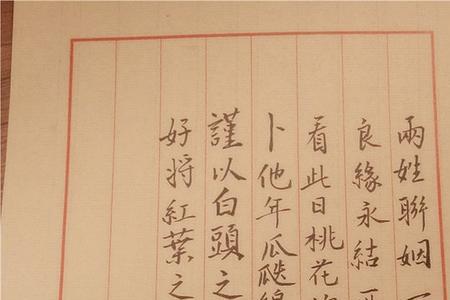 兩姓聯姻一
良緣永結
看此日桃花
卜他年瓜瓞
謹以白頭之
好将紅葉之